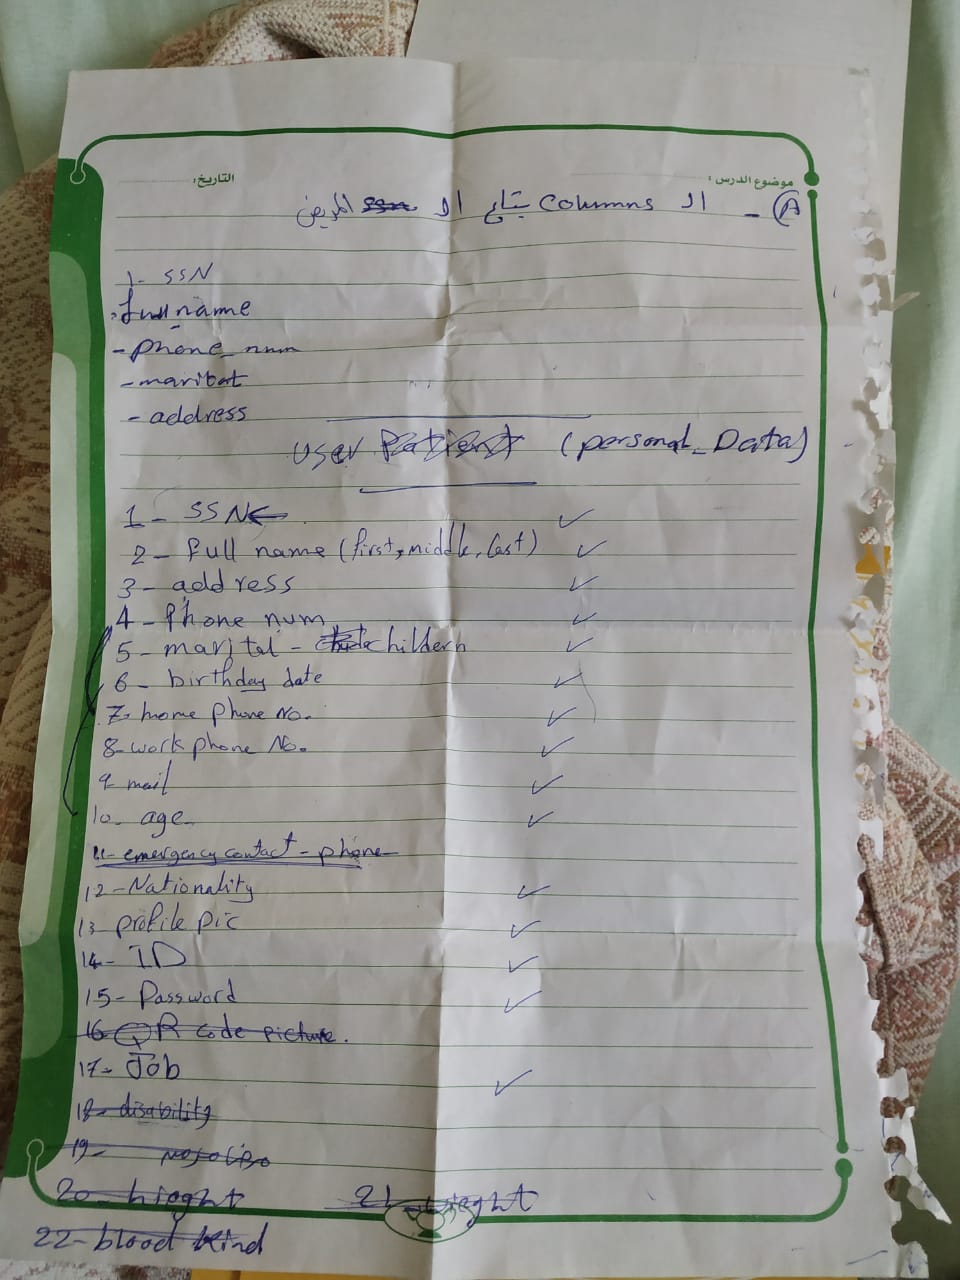 موضوع الدرس : التاريخ:
A - الـ columns بتاع الـ ssn المريض
1- SSN
full name
- phone_num
- maribat
- address
user Patient (personal_Data)
1 - SSN ←
2 - full name (first, middle, last) ✓
3 - address ✓
4 - Phone num ✓
5 - marital - childern ✓
6 - birthday date ✓
7- home phone No. ✓
8- work phone No. ✓
9- mail ✓
10- age ✓
11- emergency contact - phone
12- Nationality ✓
13 profile pic ✓
14- ID ✓
15- Password ✓
16- QR code picture.
17- Job ✓
18- disability
19-
20- hieght 21- wieght
22- blood kind